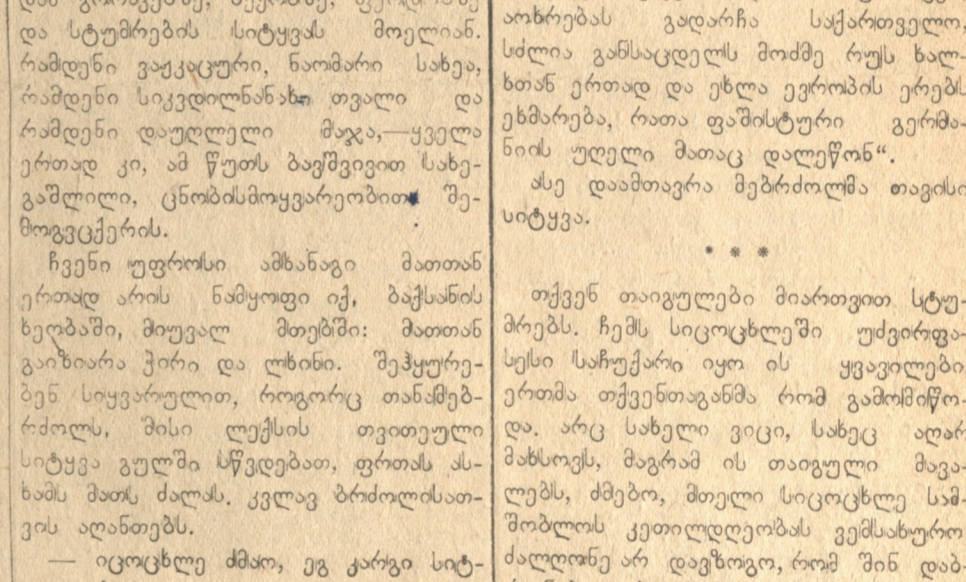 და სტუმრების სიტყვას მოელიან.
რამდენი ვაჟკაცური, ნაომარი სახეა,
რამდენი სიკვდილნანახი თვალი და
რამდენი დაუღლელი მაჯა,—ყველა
ერთად კი, ამ წუთს ბავშვივით სახე-
გაშლილი, ცნობისმოყვარეობით შე-
მოგვცქერის.
ჩვენი უფროსი ამხანაგი მათთან
ერთად არის ნამყოფი იქ, ბაქსანის
ხეობაში, მიუვალ მთებში: მათთან
გაიზიარა ჭირი და ლხინი. შეჰყურე-
ბენ სიყვარულით, როგორც თანამებ-
რძოლს, მისი ლექსის თვითეული
სიტყვა გულში სწვდებათ, ფრთას ას-
ხამს მათს ძალას. კვლავ ბრძოლისათ-
ვის აღანთებს.
— იცოცხლე ძმაო, ეგ კარგი სიტ-
აოხრებას გადარჩა საქართველო,
სძლია განსაცდელს მოძმე რუს ხალ-
ხთან ერთად და ეხლა ევროპის ერებს
ეხმარება, რათა ფაშისტური გერმა-
ნიის უღელი მათაც დალეწონ“.
ასე დაამთავრა მებრძოლმა თავისი
სიტყვა.
* * *
თქვენ თაიგულები მიართვით სტუ-
მრებს. ჩემს სიცოცხლეში უძვირფა-
სესი საჩუქარი იყო ის ყვავილები
ერთმა თქვენთაგანმა რომ გამომიწო-
და. არც სახელი ვიცი, სახეც აღარ
მახსოვს, მაგრამ ის თაიგული მავა-
ლებს, ძმებო, მთელი სიცოცხლე სამ-
შობლოს კეთილდღეობას ვემსახურო
ძალღონე არ დავზოგო, რომ შინ დაბ-